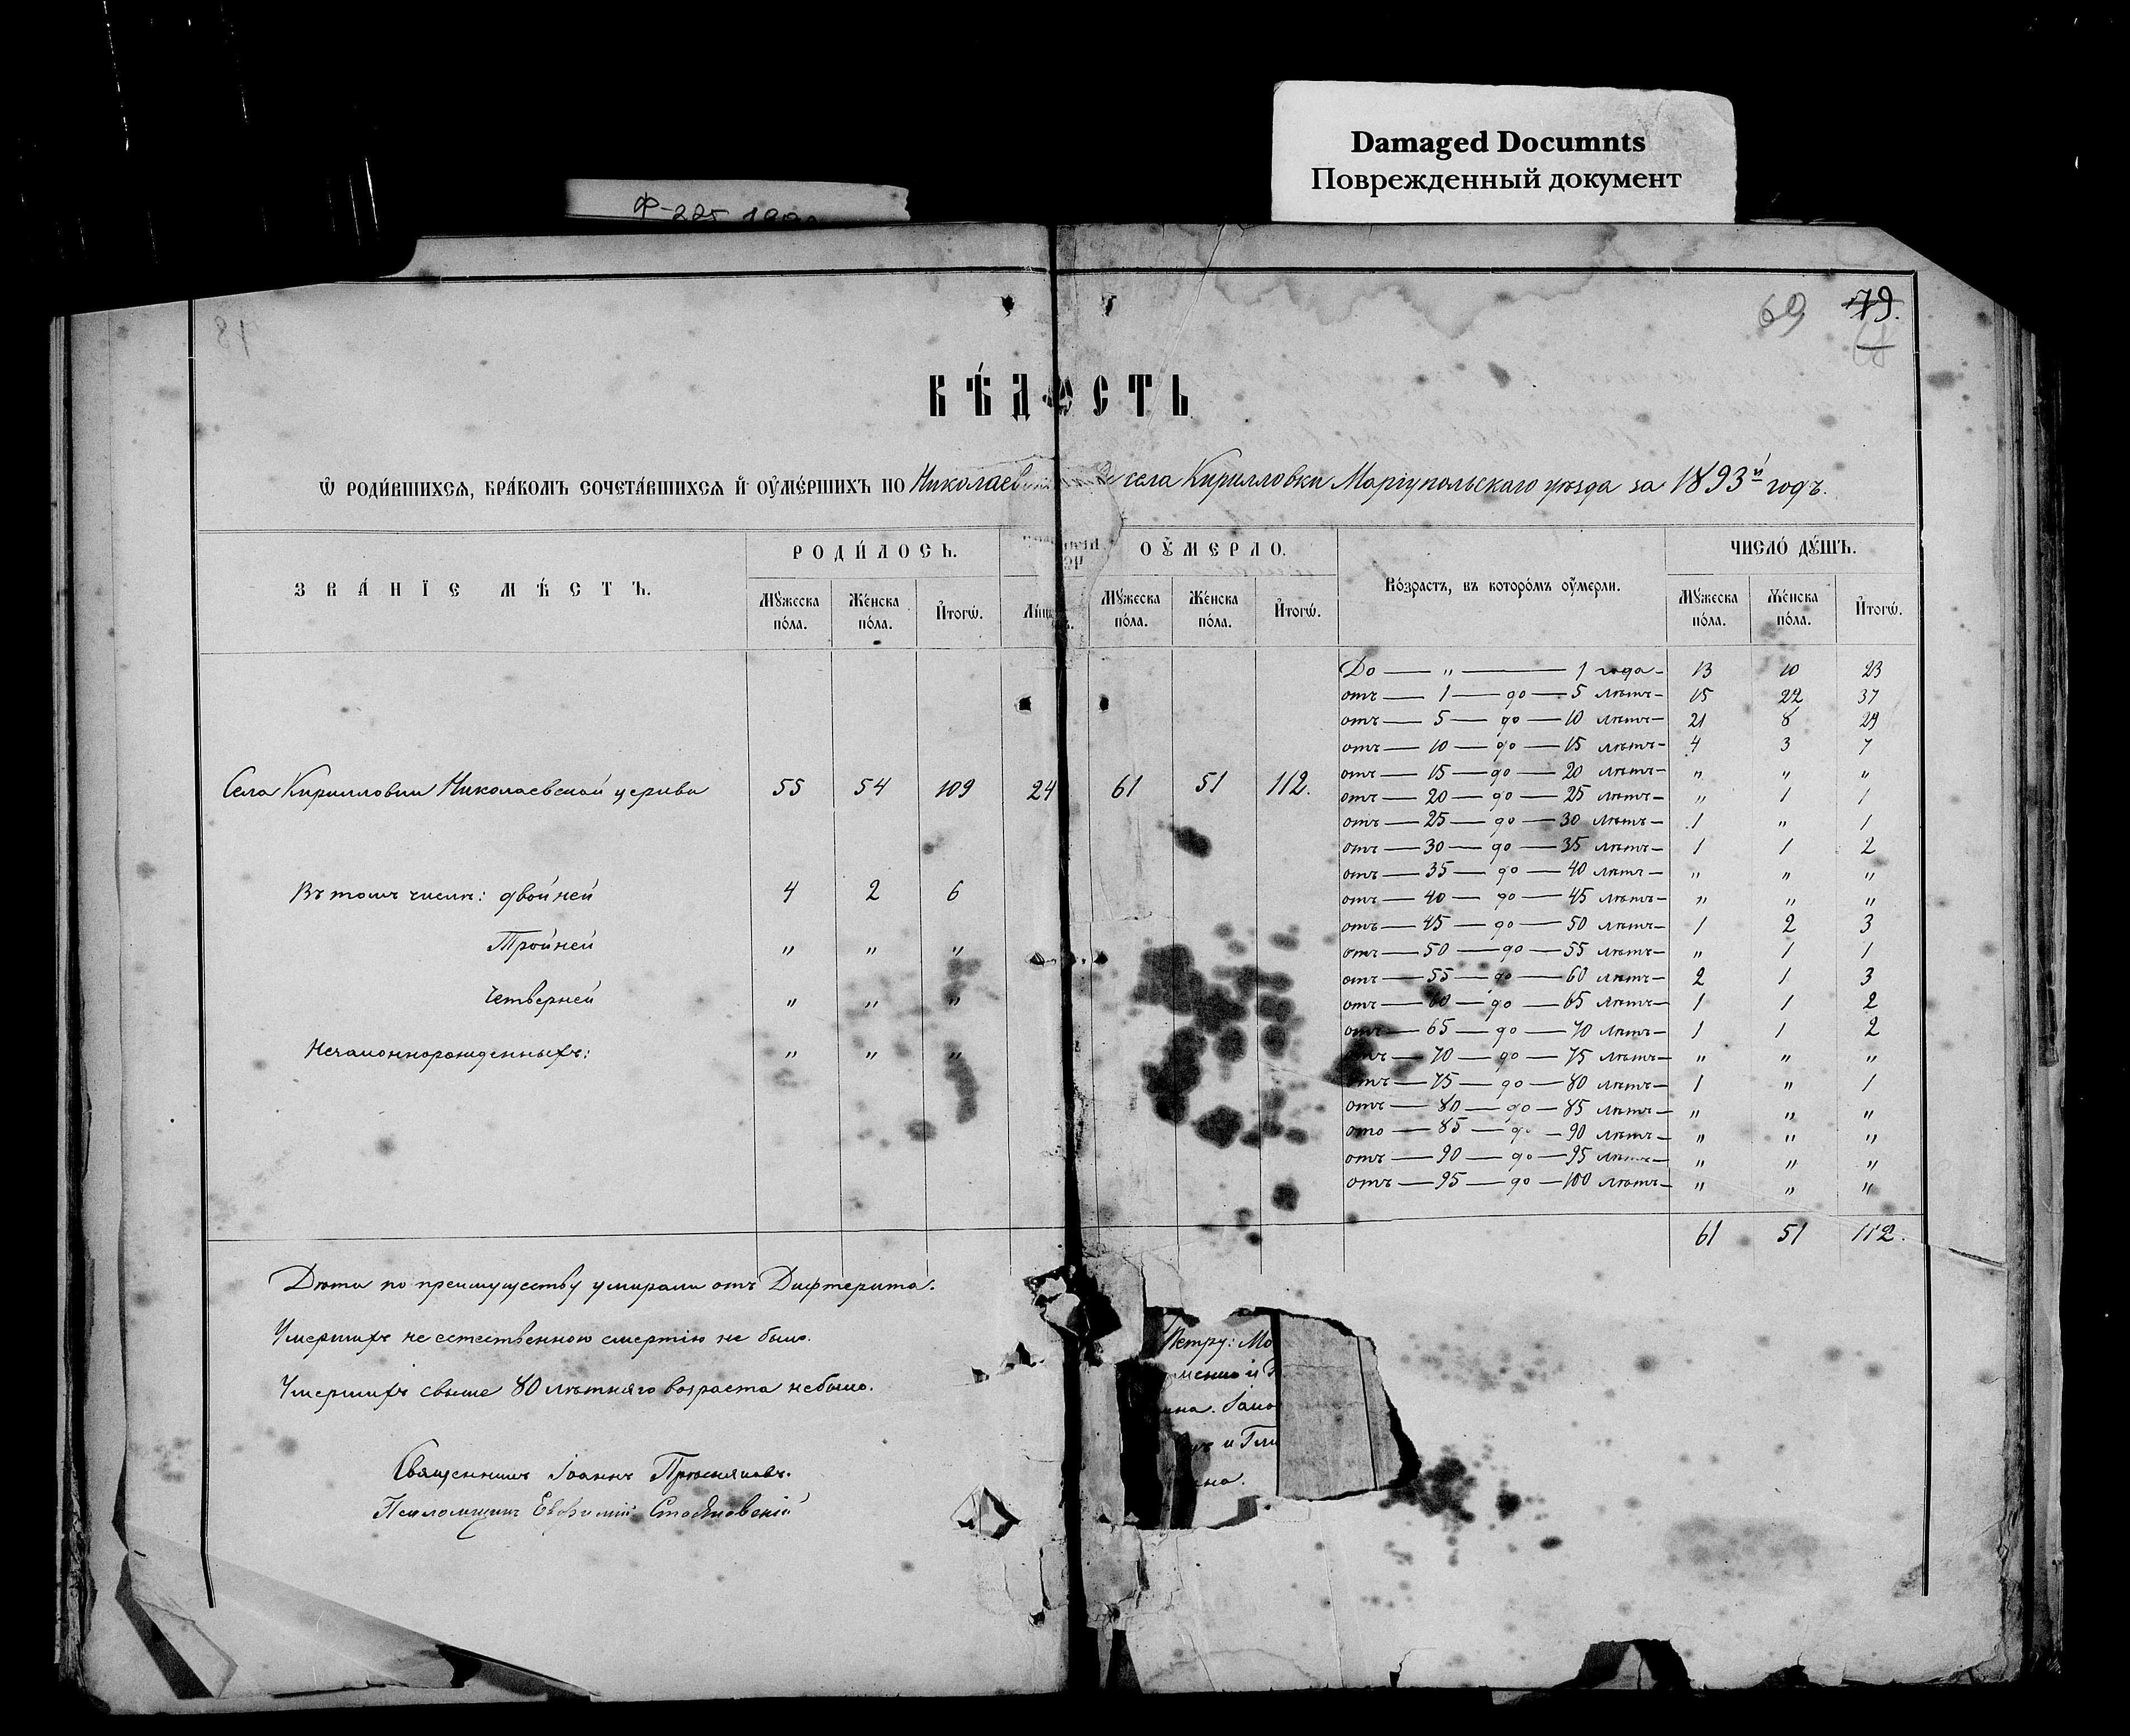 Damaged Documnts
Поврежденный документ
69 79.
ВѢ́ДОСТЬ
Ѡ РОДИ́ВШИХСѦ, БРА́КОМЪ СОЧЕТА́ВШИХСѦ И҆ ОУ҆МЕ́РШИХЪ ПО села Кирилловки Маріупольскаго уѣзда за 1893й годъ.
ЗВА́НЇЕ МѢ́СТЪ. РОДИ́ЛОСЬ. ОУ҆́МЕРЛО. Во́зрастъ, въ кото́ромъ оу҆́мерли. ЧИСЛО́ ДꙊ́ШЪ.
Мꙋ́жеска по́ла. Же́нска по́ла. И҆тогѡ̀. Мꙋ́жеска по́ла. Же́нска по́ла. И҆тогѡ̀. Мꙋ́жеска по́ла. Же́нска по́ла. И҆тогѡ̀.
До — „ — 1 года — 13 10 23
отъ — 1 — до — 5 лѣтъ — 15 22 37
отъ — 5 — до — 10 лѣтъ — 21 8 29
отъ — 10 — до — 15 лѣтъ — 4 3 7
отъ — 15 — до — 20 лѣтъ — „ „ „
Села Кирилловки Николаевской церкви 55 54 109 24 61 51 112.
отъ — 20 — до — 25 лѣтъ — „ 1 1
отъ — 25 — до — 30 лѣтъ — 1 „ 1
отъ — 30 — до — 35 лѣтъ — 1 1 2
отъ — 35 — до — 40 лѣтъ — „ „ „
Въ томъ числѣ: двойней 4 2 6
отъ — 40 — до — 45 лѣтъ — „ „ „
отъ — 45 — до — 50 лѣтъ — 1 2 3
Тройней „ „ „
отъ — 50 — до — 55 лѣтъ — „ 1 1
отъ — 55 — до — 60 лѣтъ — 2 1 3
Четверней „ „ „
отъ — 60 — до — 65 лѣтъ — 1 1 2
отъ — 65 — до — 70 лѣтъ — 1 1 2
Незаконнорожденныхъ: „ „ „
отъ — 70 — до — 75 лѣтъ — „ „ „
отъ — 75 — до — 80 лѣтъ — 1 „ 1
отъ — 80 — до — 85 лѣтъ — „ „ „
отъ — 85 — до — 90 лѣтъ — „ „ „
отъ — 90 — до — 95 лѣтъ — „ „ „
отъ — 95 — до — 100 лѣтъ — „ „ „
61 51 112.
Дѣти по преимуществу умирали отъ Дифтерита.
Умершихъ не естественною смертію не было.
Умершихъ свыше 80 лѣтняго возраста небыло.
Священникъ Іоаннъ
Псаломщикъ Евфимій
Петру: